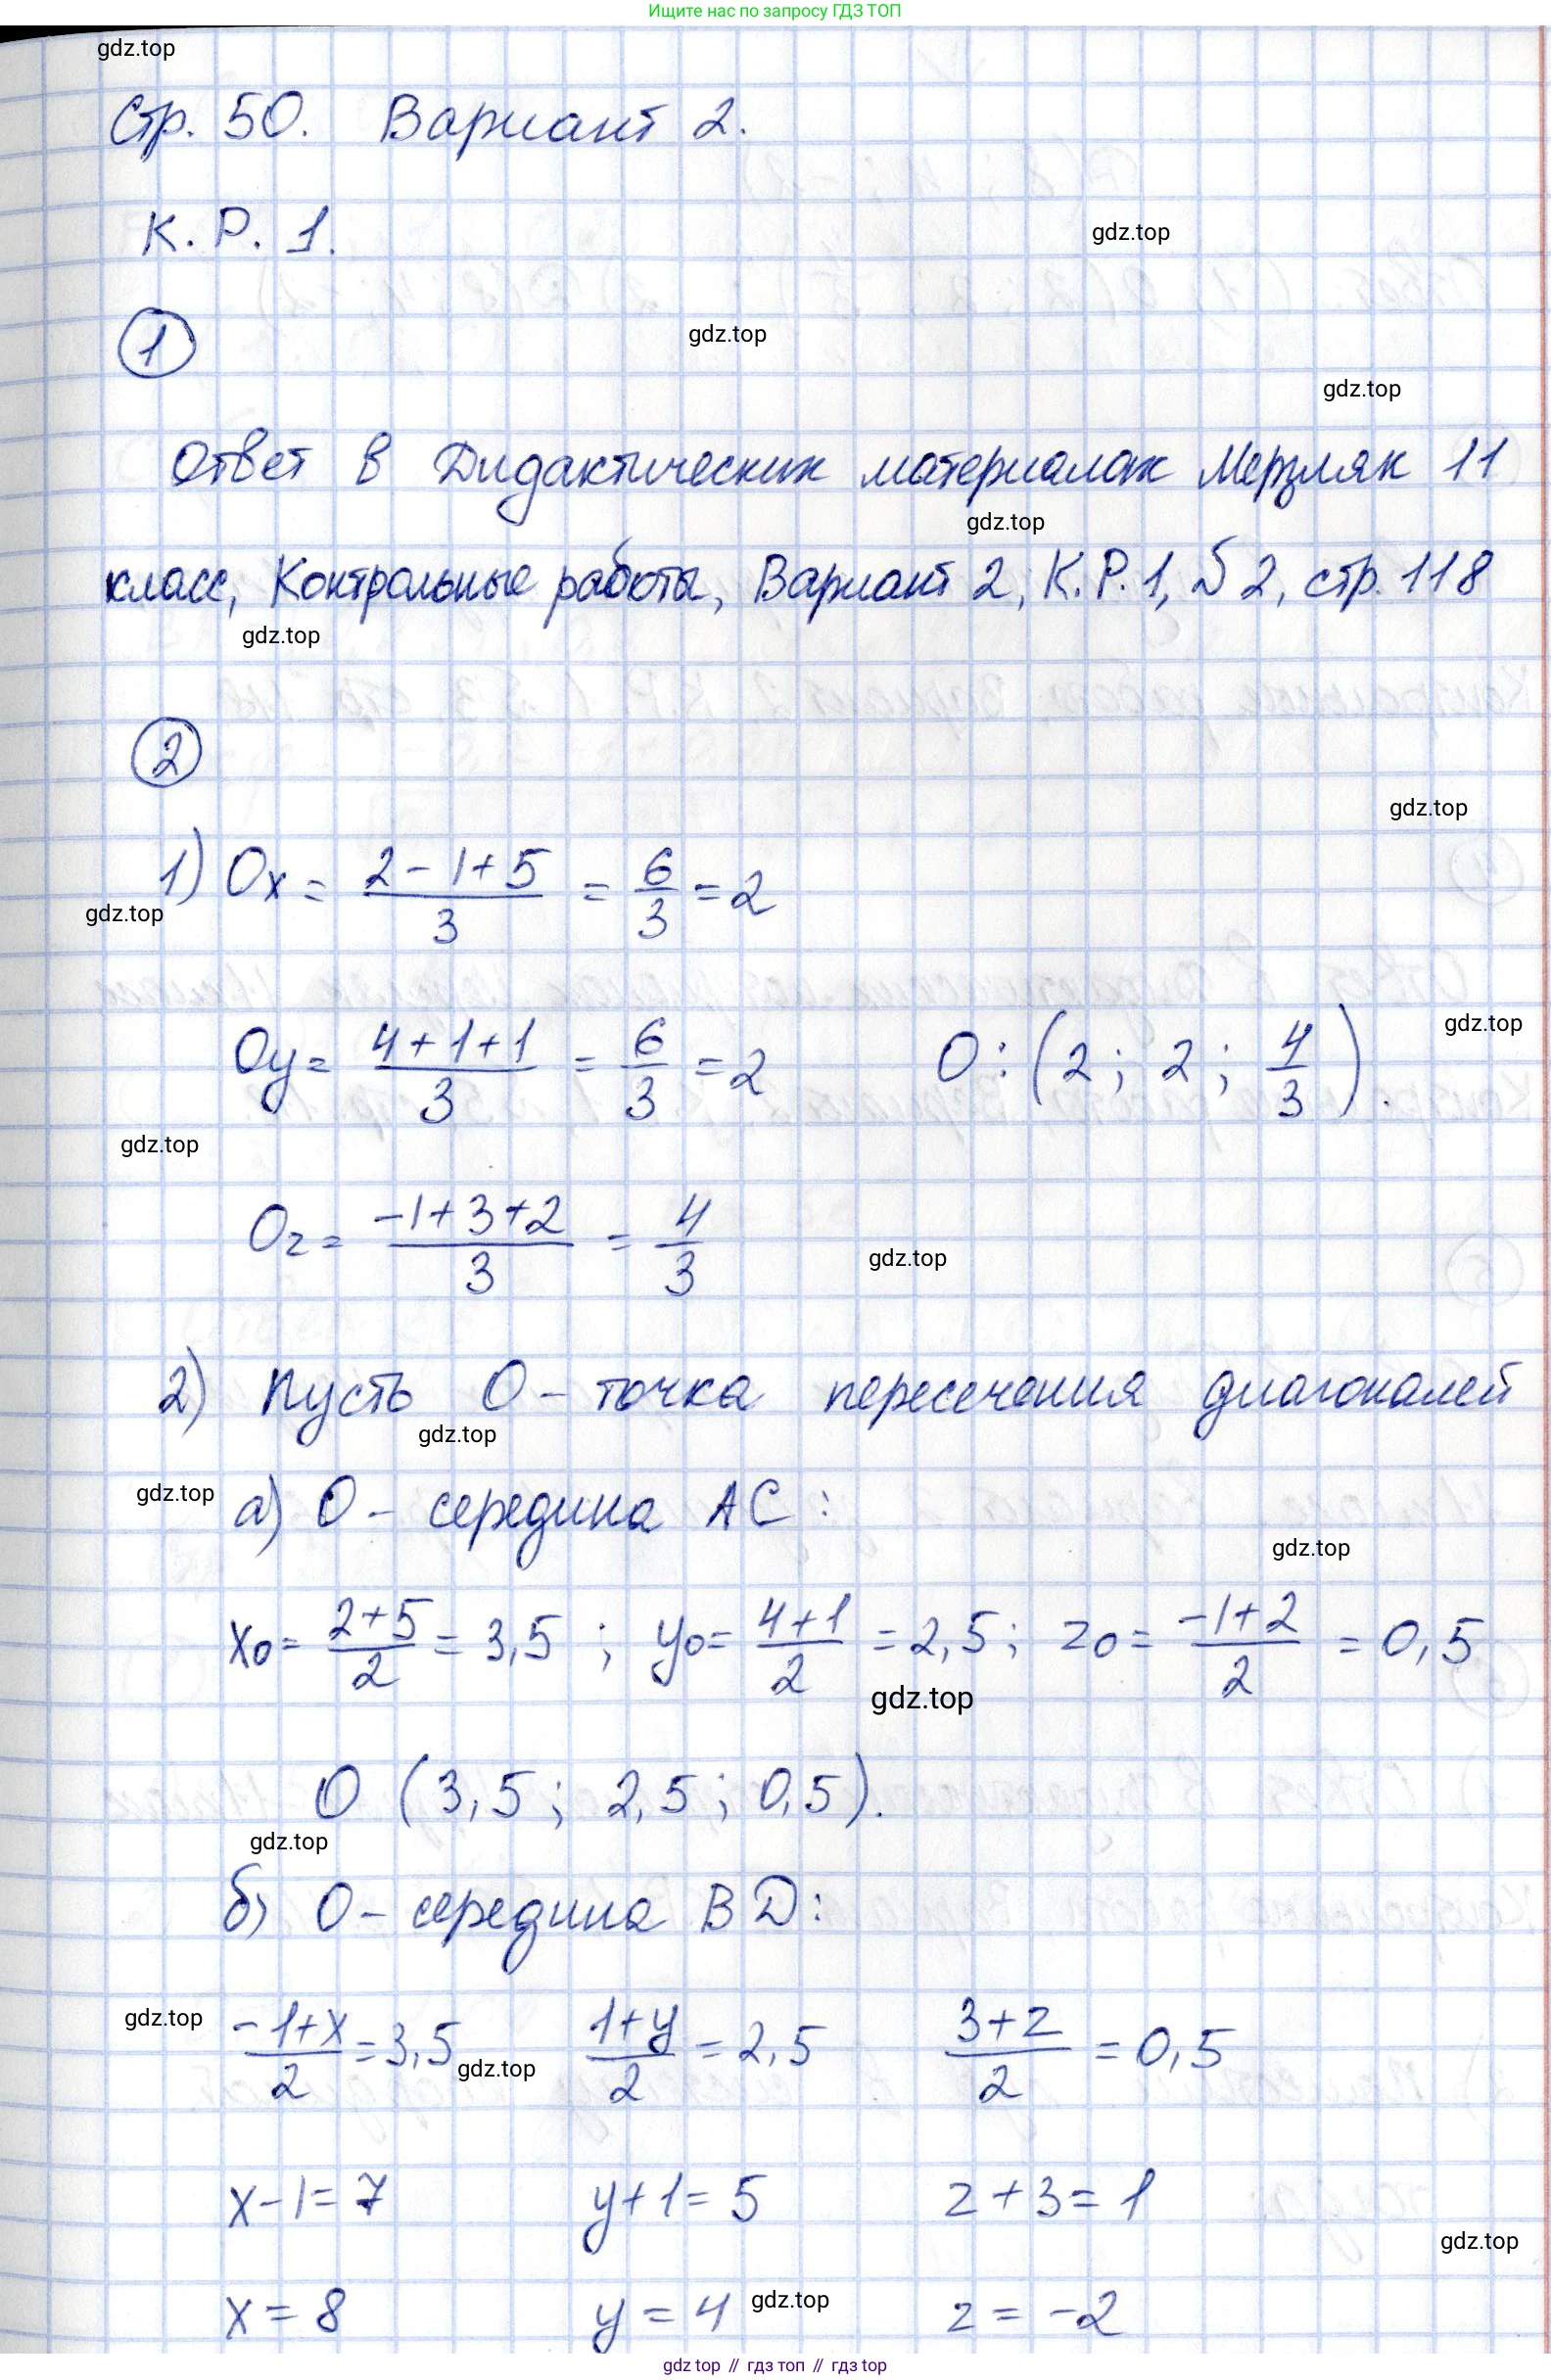 Ищите нас по запросу ГДЗ ТОП
gdz.top
Стр. 50. Вариант 2.
К. Р. 1.
gdz.top
1
gdz.top
gdz.top
Ответ в Дидактических материалах Мерзляк 11
gdz.top
класс, Контрольные работы, Вариант 2, К.Р. 1, № 2, стр. 118
gdz.top
2
gdz.top
1) Ox = (2 - 1 + 5)/3 = 6/3 = 2
gdz.top
gdz.top
Oy = (4 + 1 + 1)/3 = 6/3 = 2 O: (2; 2; 4/3).
gdz.top
Oz = (-1 + 3 + 2)/3 = 4/3
gdz.top
2) Пусть O - точка пересечения диагоналей
gdz.top
gdz.top
а) O - середина AC:
gdz.top
x0 = (2+5)/2 = 3,5; y0 = (4+1)/2 = 2,5; z0 = (-1+2)/2 = 0,5
gdz.top
O (3,5; 2,5; 0,5).
gdz.top
б) O - середина BD:
gdz.top
(-1+x)/2 = 3,5 (1+y)/2 = 2,5 (3+z)/2 = 0,5
gdz.top
x - 1 = 7 y + 1 = 5 z + 3 = 1
gdz.top
x = 8 y = 4 z = -2
gdz.top
gdz top // гдз топ // gdz top